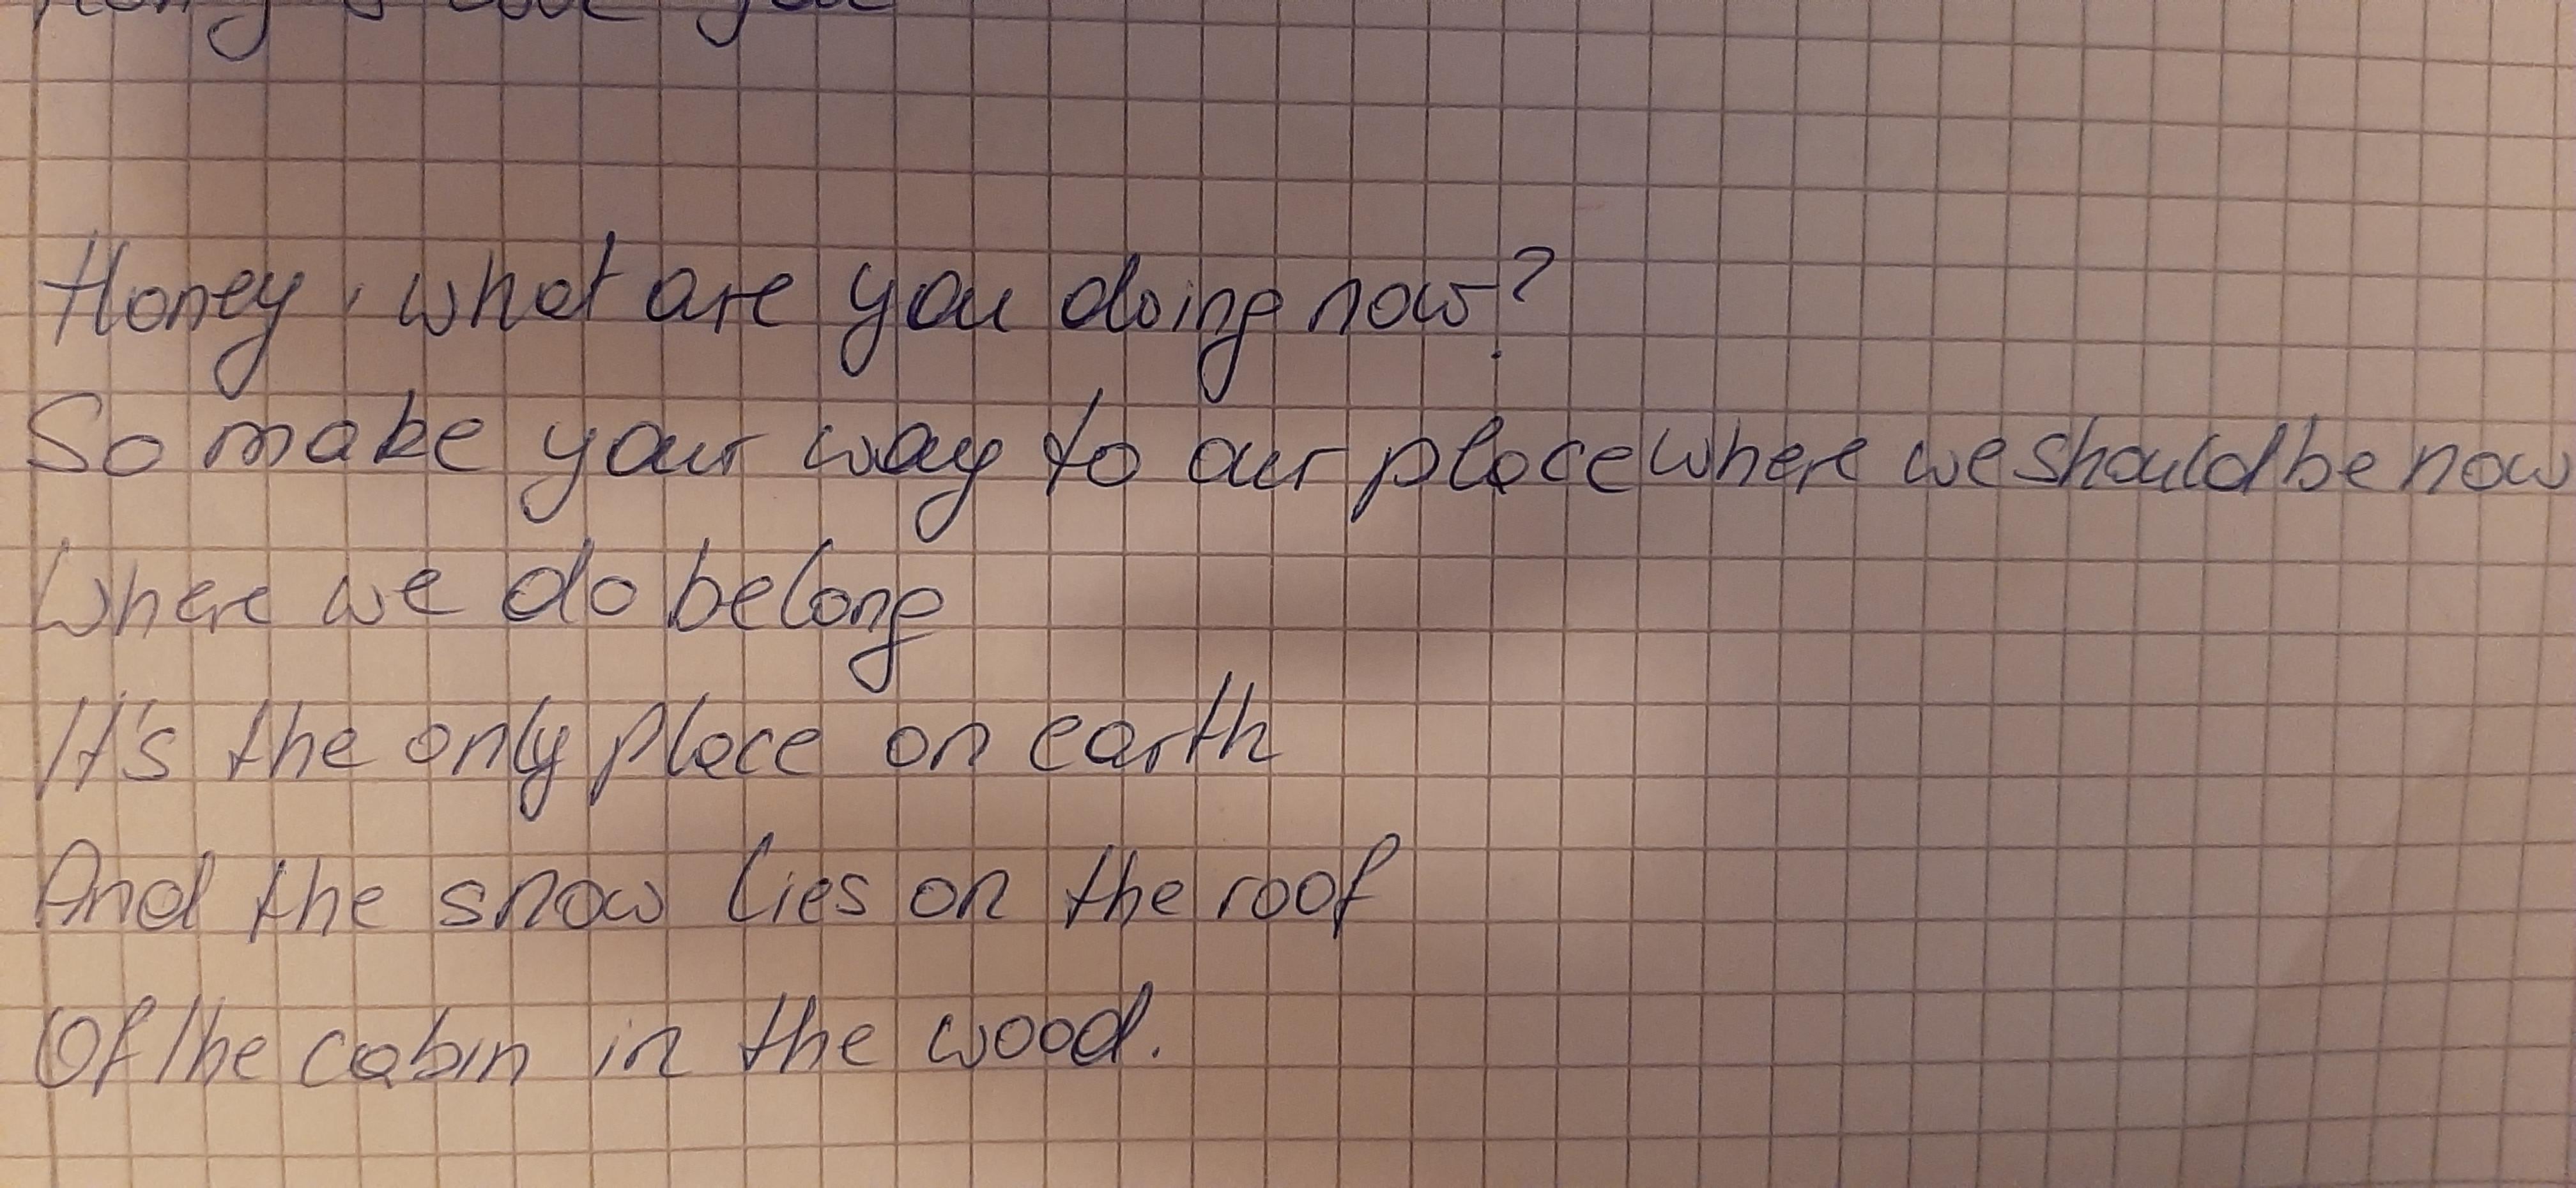 you
Honey, what are you doing now?
So make your way to our place where we should be now
Where we do belong
It's the only place on earth
And the snow lies on the roof
Of the cabin in the wood.